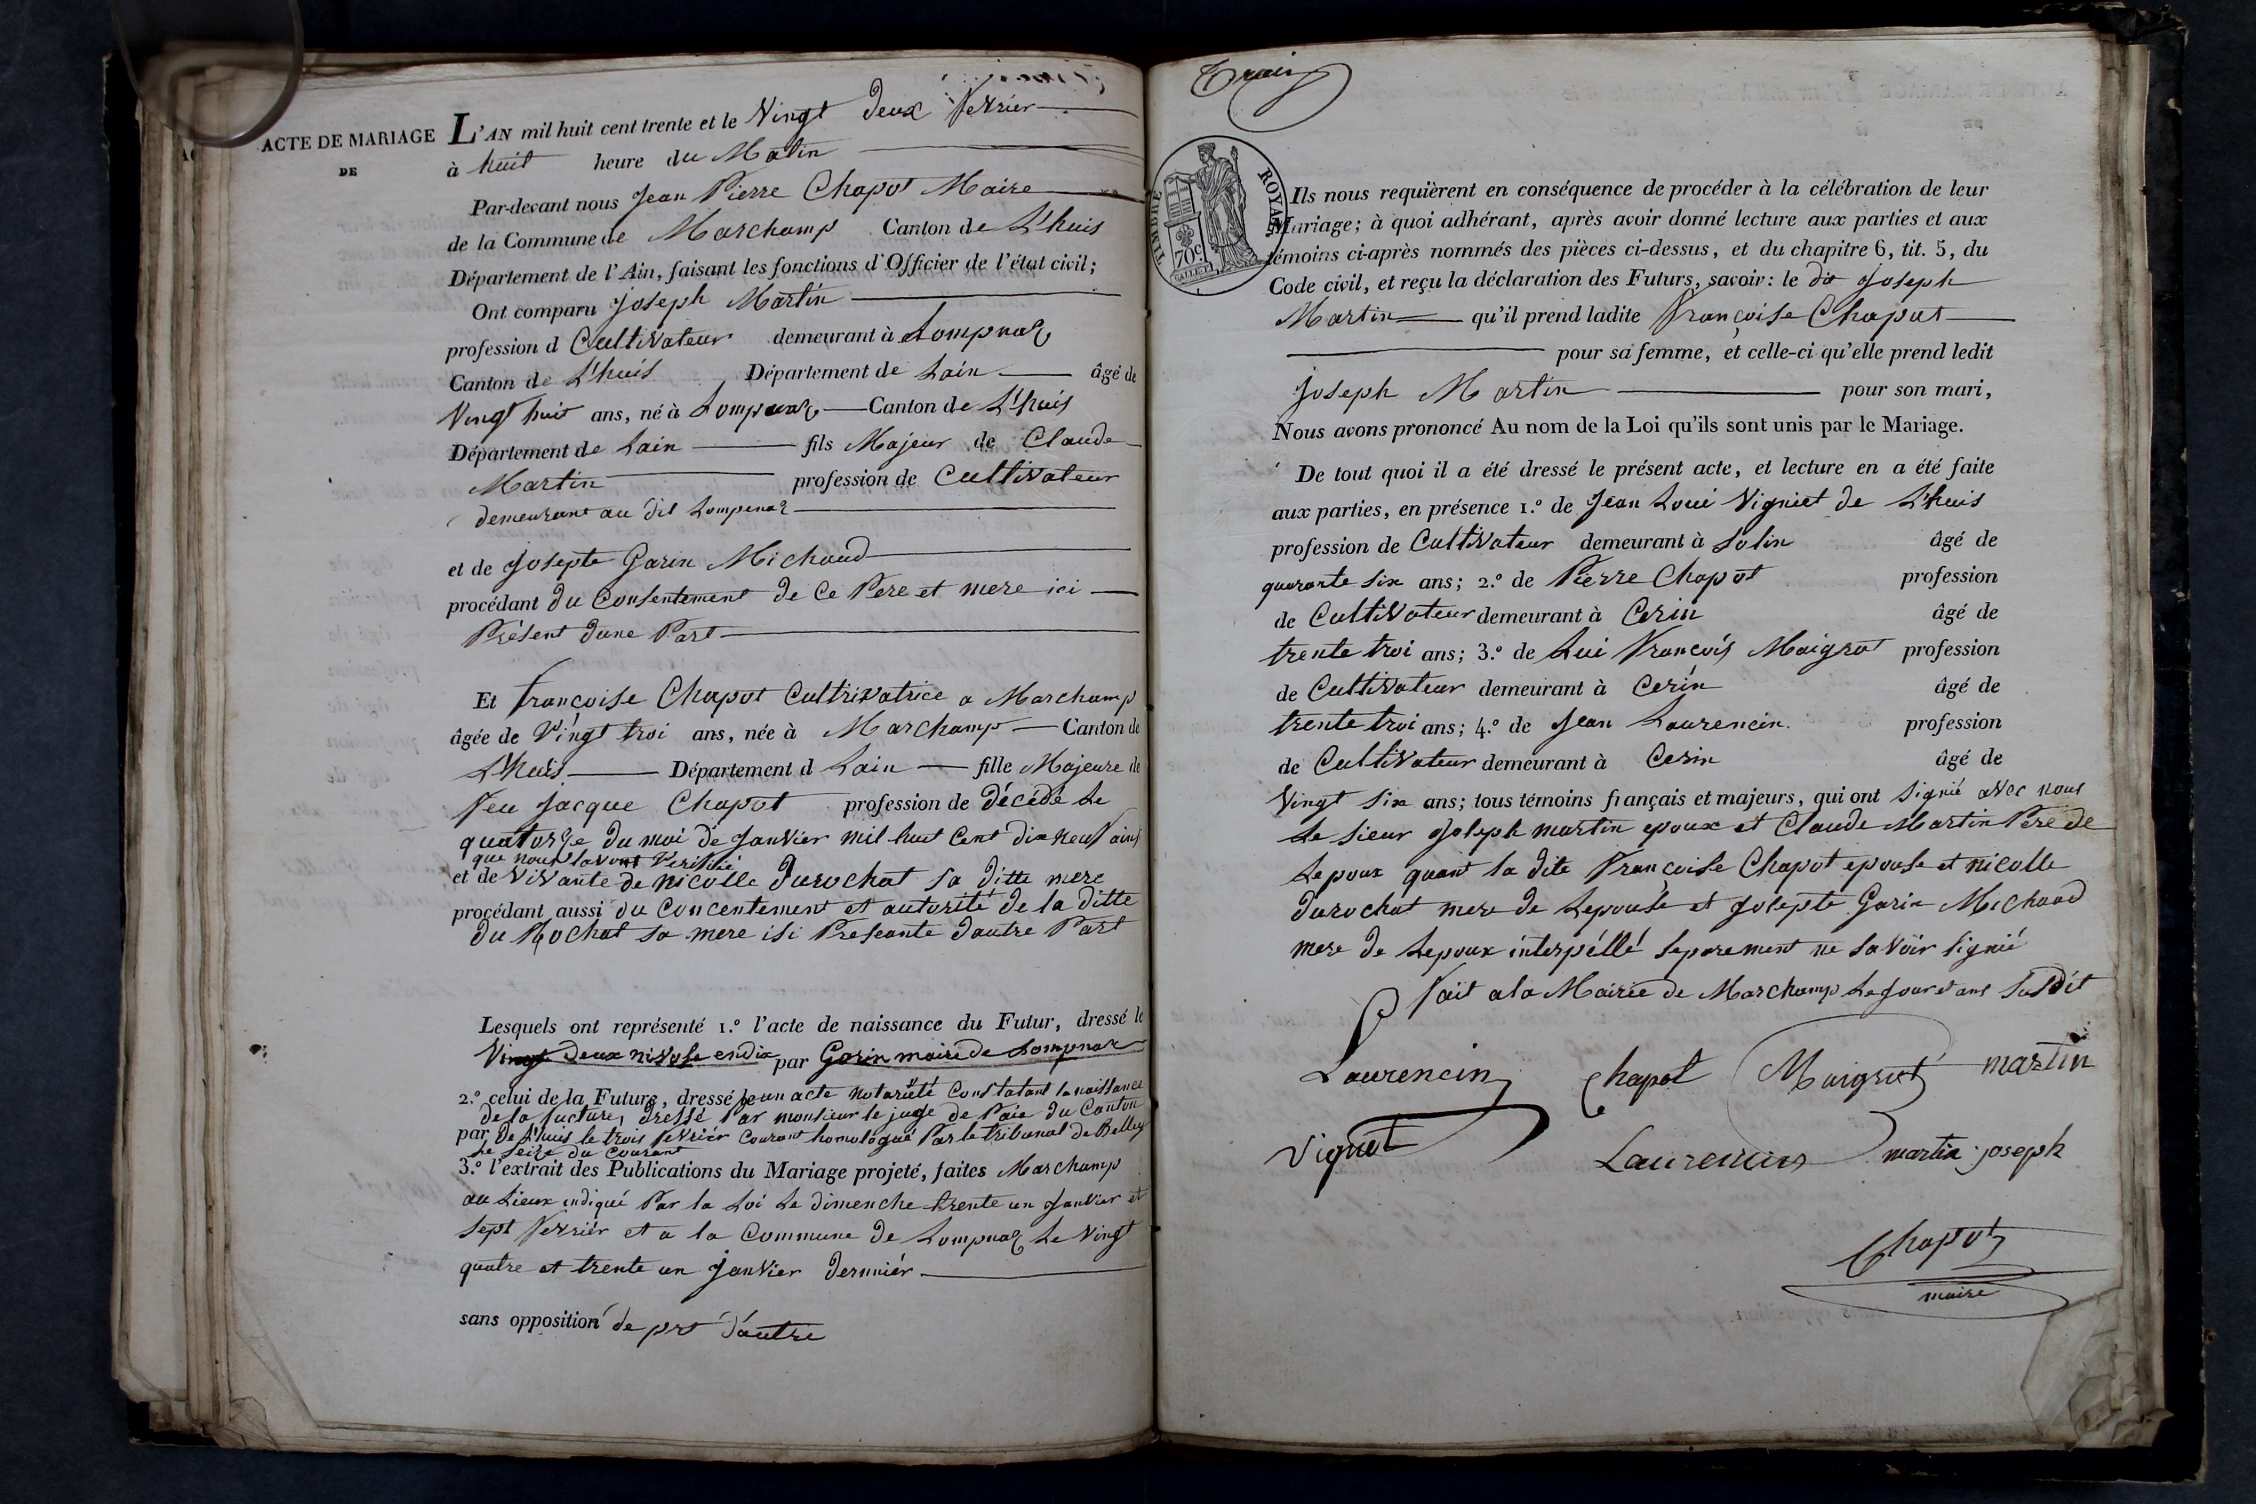 ACTE DE MARIAGE
DE
L'AN mil huit cent trente et le Vingt Deux fevrier
à huit heure du Matin
Par-devant nous Jean Pierre Chapot Maire
de la Commune de Marchamp Canton de L'huis
Département de l'Ain, faisant les fonctions d'Officier de l'état civil;
Ont comparu Joseph Martin
profession d Cultivateur demeurant à Lompnaz
Canton de L'huis Département de Lain âgé de
Vingt huit ans, né à Lompnaz Canton de L'huis
Département de Lain fils Majeur de Claude
Martin profession de Cultivateur
demeurant au dit Lompnaz
et de Josepte Garin Michaud
procédant du Consentement de Ce Pere et mere ici
Présent dune Part
Et françoise Chapot Cultrivatrice a Marchamp
âgée de Vingt troi ans, née à Marchamp Canton de
L'huis Département d Lain fille Majeure de
feu Jacque Chapot profession de décédé Le
quatorze du moi de Janvier mil huit Cent dix neuf ainsi
que nous lavont Verifiié
et de Vivante de nicolle Durochat sa ditte mere
procédant aussi du Concentement et autorité de la ditte
du Rochat sa mere isi Preseante dautre Part
Lesquels ont représenté 1.º l'acte de naissance du Futur, dressé le
Vingt deux nivose en dix par Garin maire de Lompnaz
2.º celui de la Future, dressé le un acte notariété Constatant la naissance
de la facture, dressé Par monsieur le juge de Paix du Canton
par de L'huis le trois fevrier Courant homologué Par le tribunal de Belley
Le seize du Courant
3.º l'extrait des Publications du Mariage projeté, faites Marchamp
au Lieux indiqué Par la Loi Le dimenche trente un Janvier et
sept fevrier et a la Commune de Lompnaz Le Vingt
quatre et trente un Janvier dernniér
sans opposition de prt d'autre
Trois
TIMBRE ROYAL
70c
Ils nous requièrent en conséquence de procéder à la célébration de leur
Mariage; à quoi adhérant, après avoir donné lecture aux parties et aux
témoins ci-après nommés des pièces ci-dessus, et du chapitre 6, tit. 5, du
Code civil, et reçu la déclaration des Futurs, savoir: le dit Joseph
Martin qu'il prend ladite Françoise Chapot
pour sa femme, et celle-ci qu'elle prend ledit
Joseph Martin pour son mari,
Nous avons prononcé Au nom de la Loi qu'ils sont unis par le Mariage.
De tout quoi il a été dressé le présent acte, et lecture en a été faite
aux parties, en présence 1.º de Jean Loui Vigniet de L'huis
profession de Cultivateur demeurant à Solin âgé de
quarante six ans; 2.º de Pierre Chapot profession
de Cultivateur demeurant à Cerin âgé de
trente troi ans; 3.º de Lui François Maigrot profession
de Cultivateur demeurant à Cerin âgé de
trente troi ans; 4.º de Jean Laurencin profession
de Cultivateur demeurant à Cerin âgé de
Vingt six ans; tous témoins français et majeurs, qui ont Signié avec nous
Le sieur Joseph martin epoux et Claude Martin Pere de
Lepoux quant la dite Françoise Chapot epouse et nicolle
Durochat mere de Lepouse et Josepte Garin Michaud
mere de Lepoux interpéllé Seporement ne Savoir Signié
fait a la Mairie de Marchamp Le Jour et ans Susdit
Laurencin Chapot Maigrot martin
Vignet Laurencin martin joseph
Chapot
maire